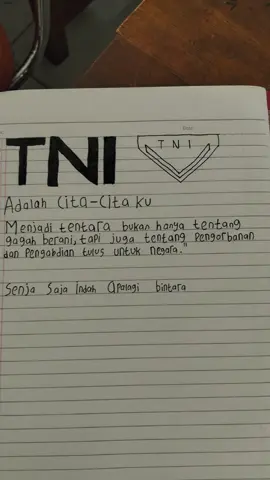 TNI
TNI
Adalah Cita-Cita ku
Menjadi tentara bukan hanya tentang
gagah berani, tapi juga tentang Pengorbanan
dan Pengabdian tulus untuk negara."
Senja Saja Indah Apalagi bintara